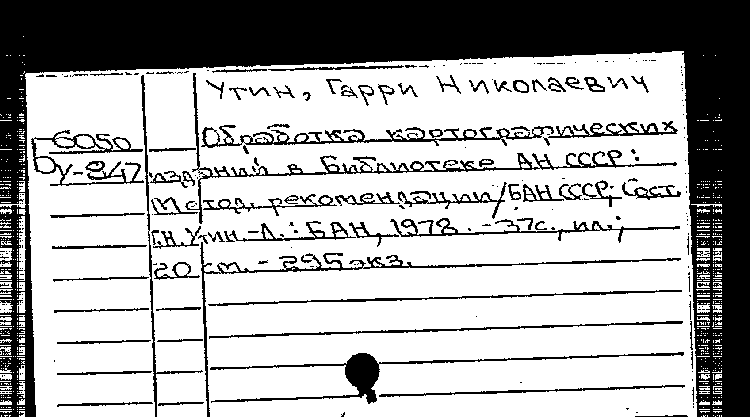 Утин, Гарри Николаевич
Обработка картографических
изданий в Библиотеке АН СССР:
Метод. рекомендации/БАН СССР; Сост.
Г.Н. Утин.-Л.: БАН, 1978. - 37с., ил.;
20 см. - 295 экз.
Б 6050
У-8/47